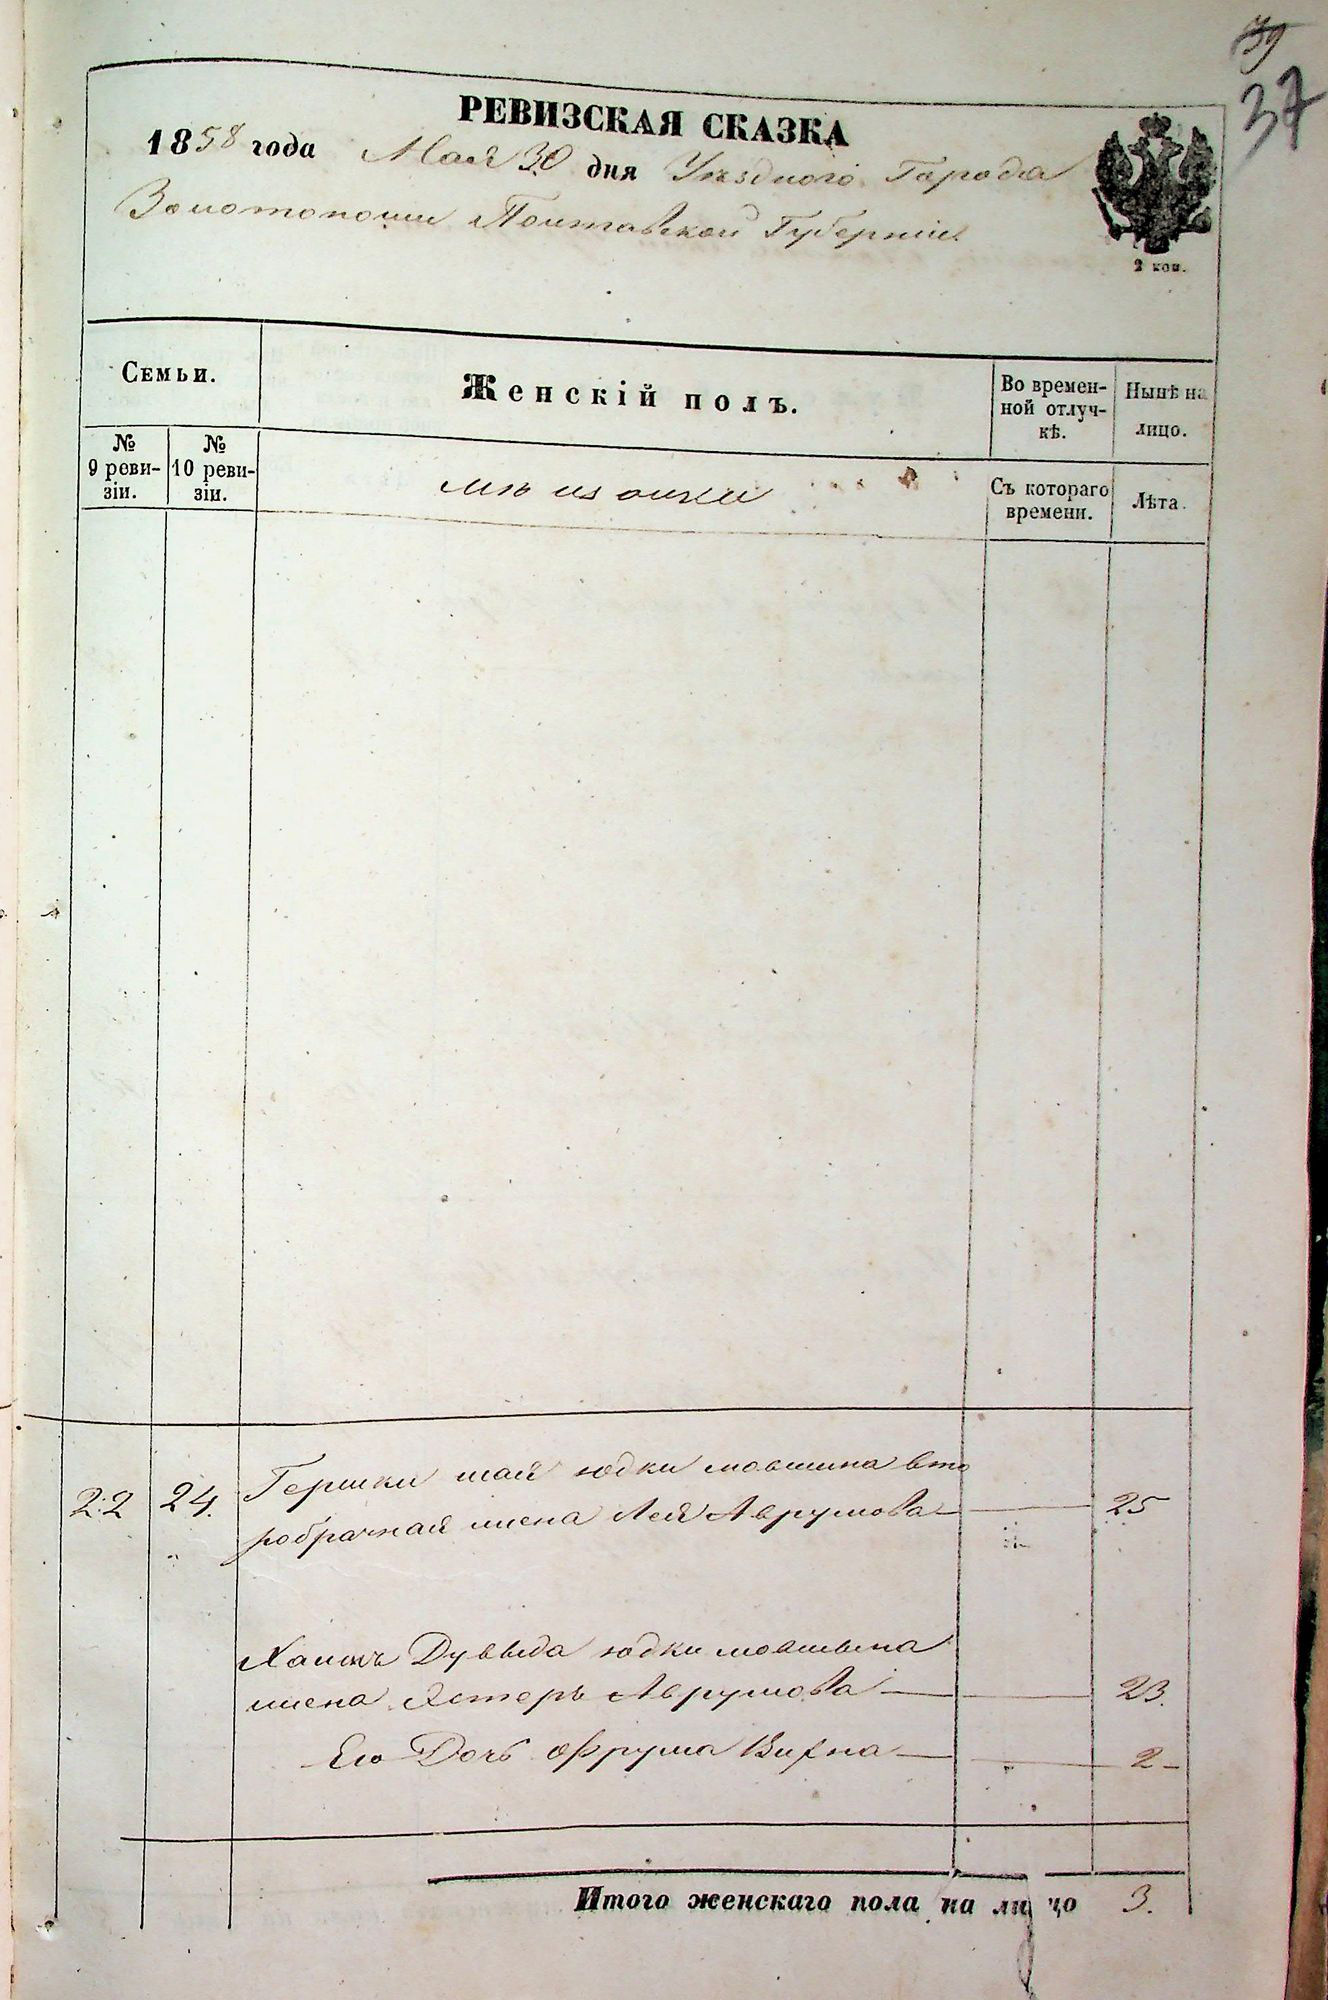 39
37
РЕВИЗСКАЯ СКАЗКА
1858 года Мая 30 дня Уѣзднаго Города
Золотоноши Полтавской Губерніи
2 коп.
Семьи.
Женскій полъ.
Во времен-
ной отлуч-
кѣ.
Нынѣ на
лицо.
№
9 реви-
зіи.
№
10 реви-
зіи.
Мѣщанки
Съ котораго
времени.
Лѣта.
22 24. Гершки шаи юдки мовшина вто
робрачная жена Лея Аврумова — 25
Хаимъ Дувыда юдки мовшына
жена Эстеръ Аврумова — 23.
Его Дочь Фрума Вихна — 2 –
Итого женскаго пола на лицо 3.